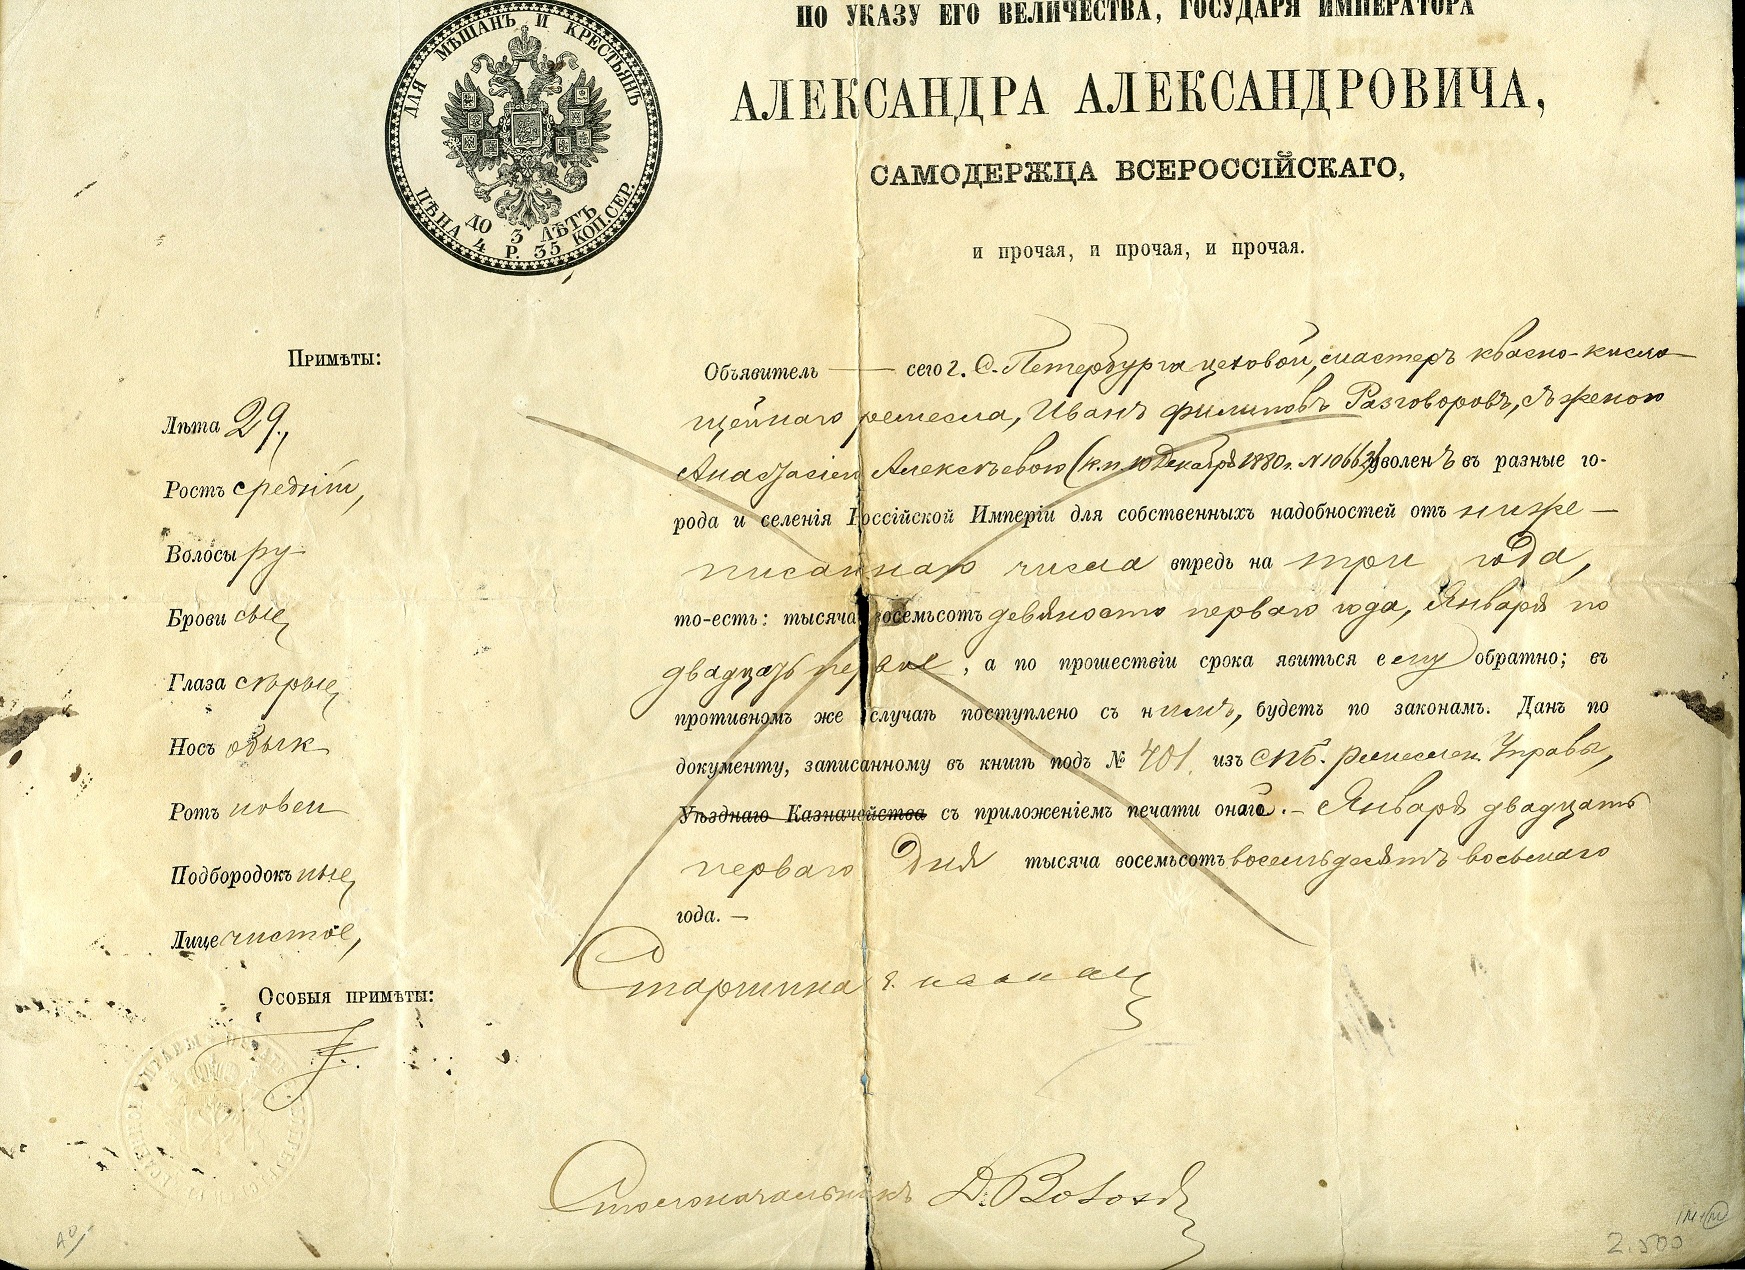 ДЛЯ МѢЩАНЪ И КРЕСТЬЯНЪ
ДО 3 ЛѢТЪ
ЦѢНА 4 Р. 35 КОП. СЕР.
ПО УКАЗУ ЕГО ВЕЛИЧЕСТВА, ГОСУДАРЯ ИМПЕРАТОРА
АЛЕКСАНДРА АЛЕКСАНДРОВИЧА,
САМОДЕРЖЦА ВСЕРОССІЙСКАГО,
и прочая, и прочая, и прочая.
Примѣты:
Лѣта 29.,
Ростъ средній,
Волосы ру-
Брови сые,
Глаза сѣрые,
Носъ обык-
Ротъ новен-
Подбородокъ ные,
Лице чистое,
Особыя примѣты:
Объявитель — сего г. С. Петербурга цеховой, мастеръ квасно-кисло-
щейнаго ремесла, Иванъ Филиповъ Разговоровъ, съ женою
Анастасіею Алексѣевою (к.п. 10 Декабря 1880 г. № 10663) уволенъ въ разные го-
рода и селенія Россійской Имперіи для собственныхъ надобностей отъ ниже-
писаннаго числа впредь на три года,
то-есть: тысяча восемьсотъ девяносто перваго года, Января по
двадцать первое, а по прошествіи срока явиться ему обратно; въ
противномъ же случаѣ поступлено съ нимъ, будетъ по законамъ. Данъ по
документу, записанному въ книгѣ подъ № 401. изъ СПб. ремеслен. Управы,
Уѣзднаго Казначейства съ приложеніемъ печати оной.- Января двадцать
перваго Дня тысяча восемьсотъ восемьдесятъ восьмаго
года. —
Старшина
Столоначальникъ Д.
2.500